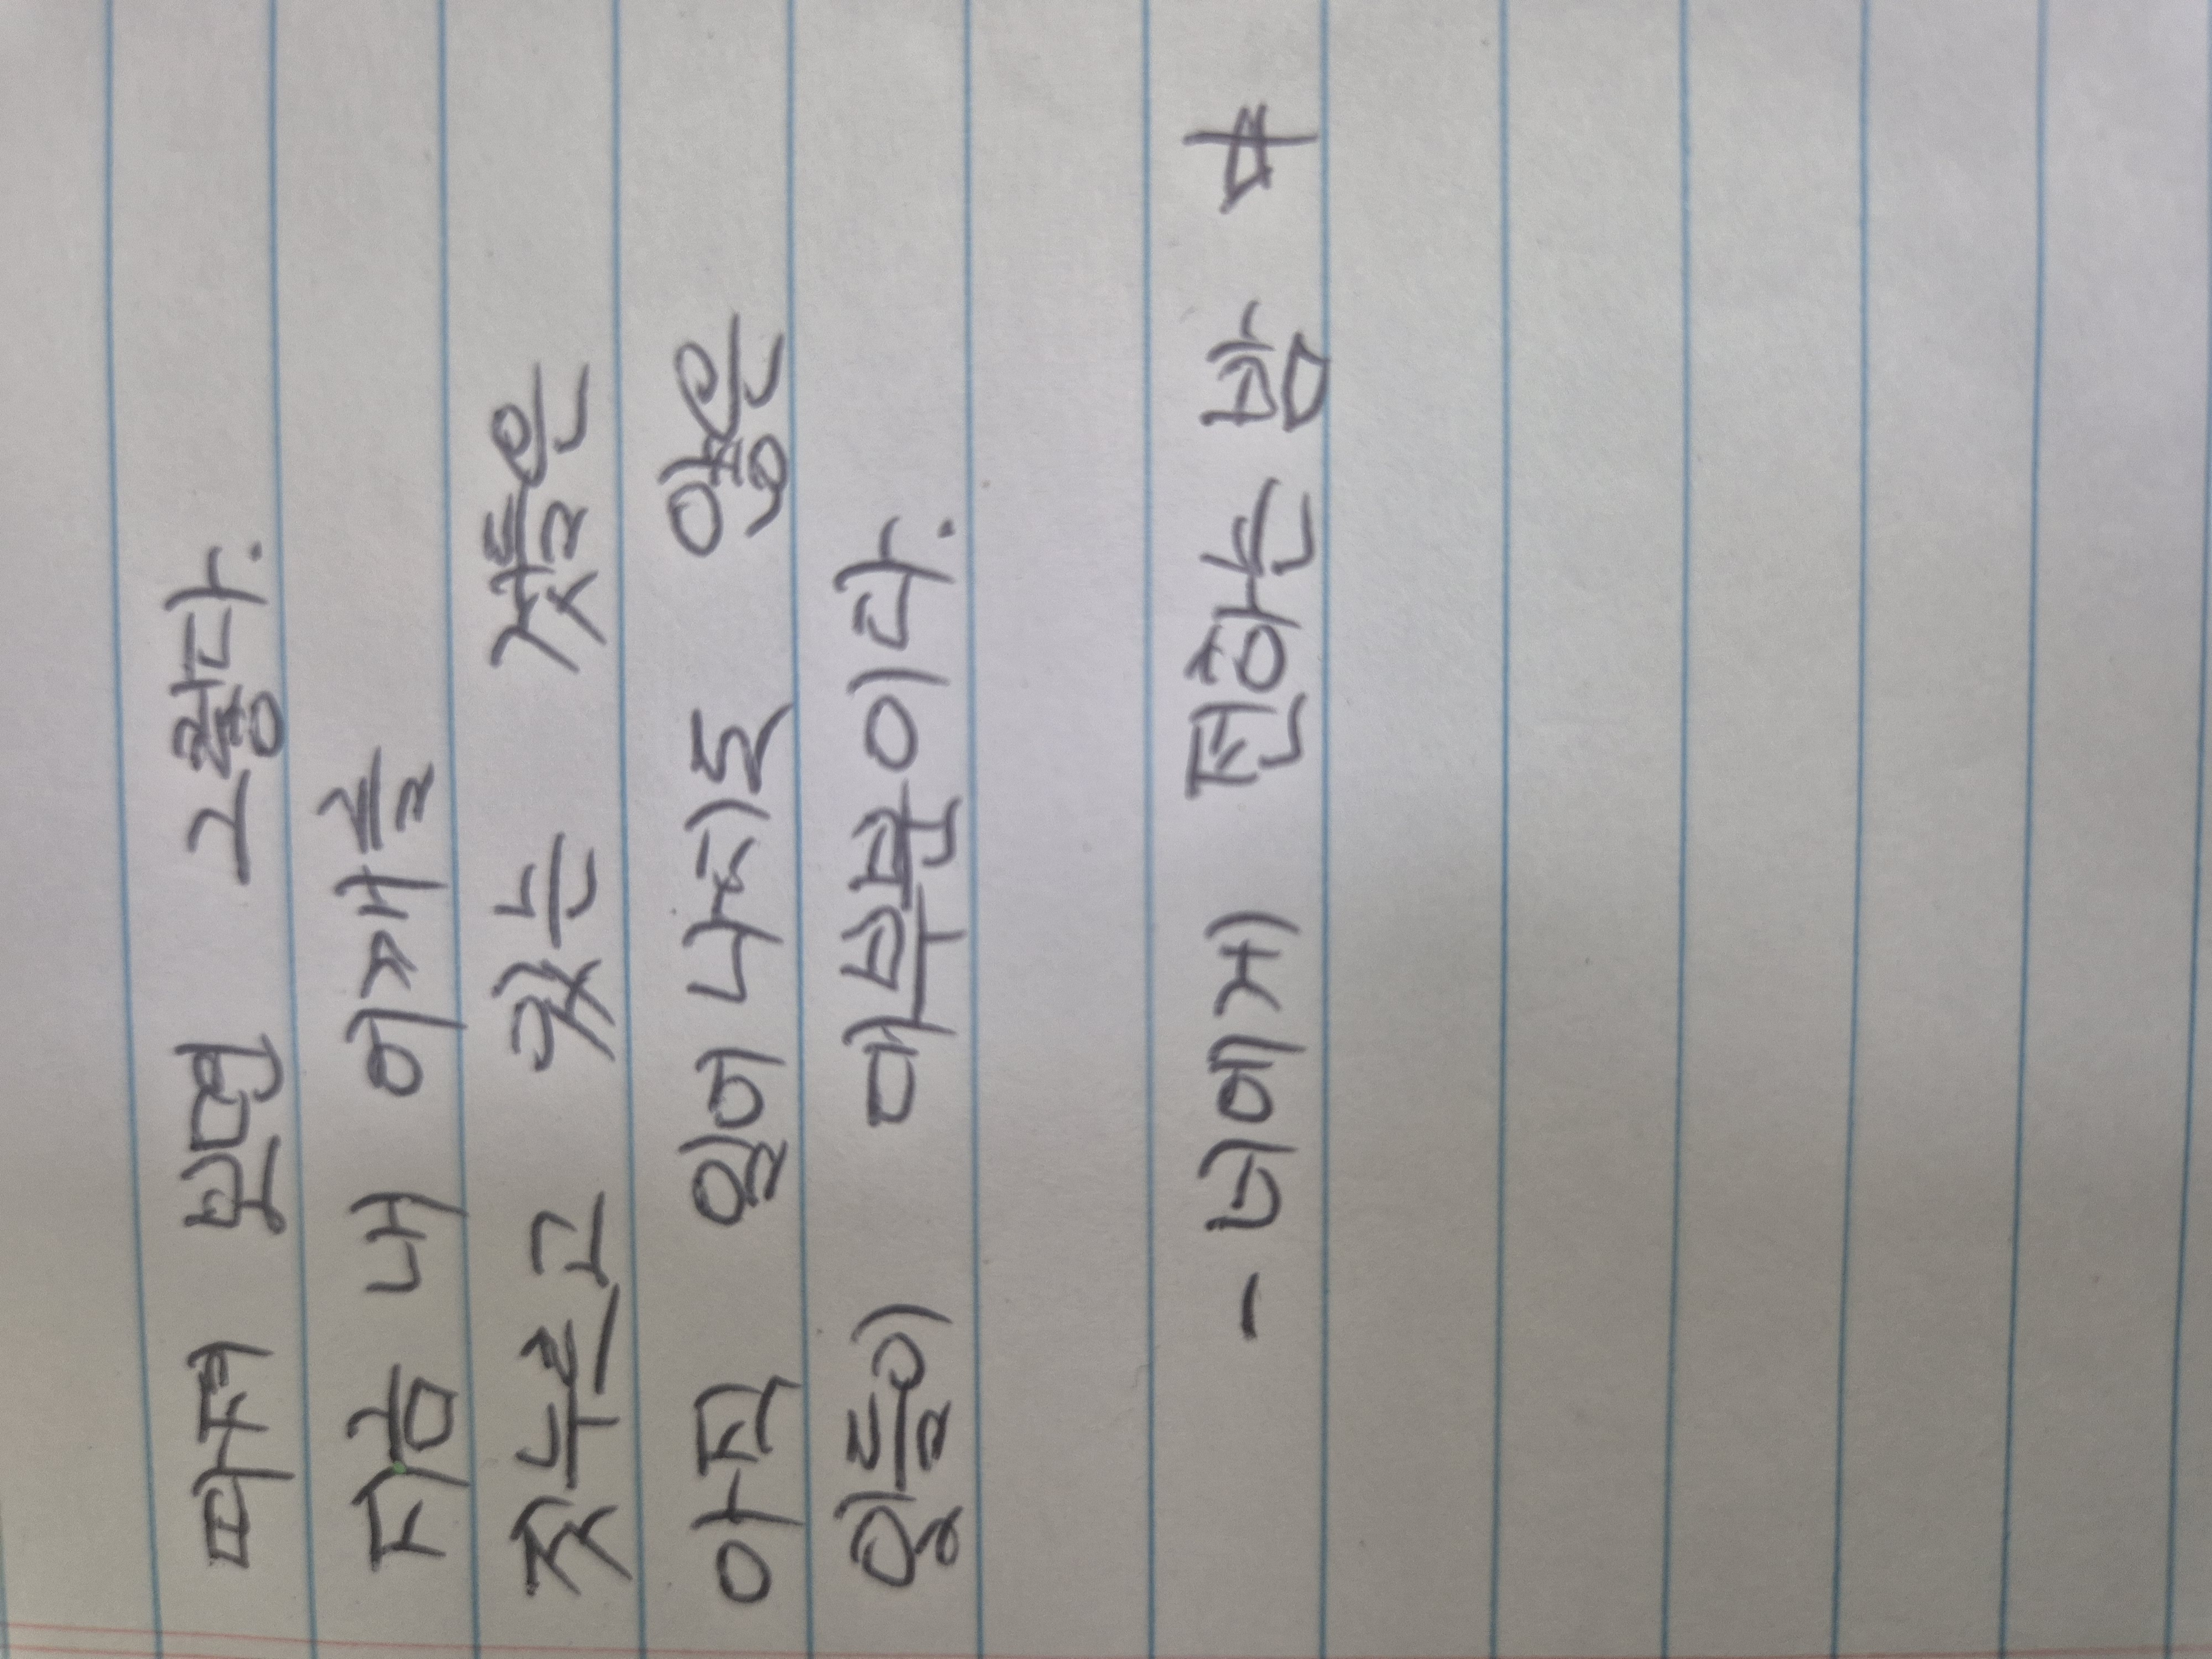 따져 보면 그렇다.
지금 내 어깨를
짓누르고 있는 것들은
아직 일어나지도 않은
일들이 대부분이다.
- 너에게 전하는 밤 中